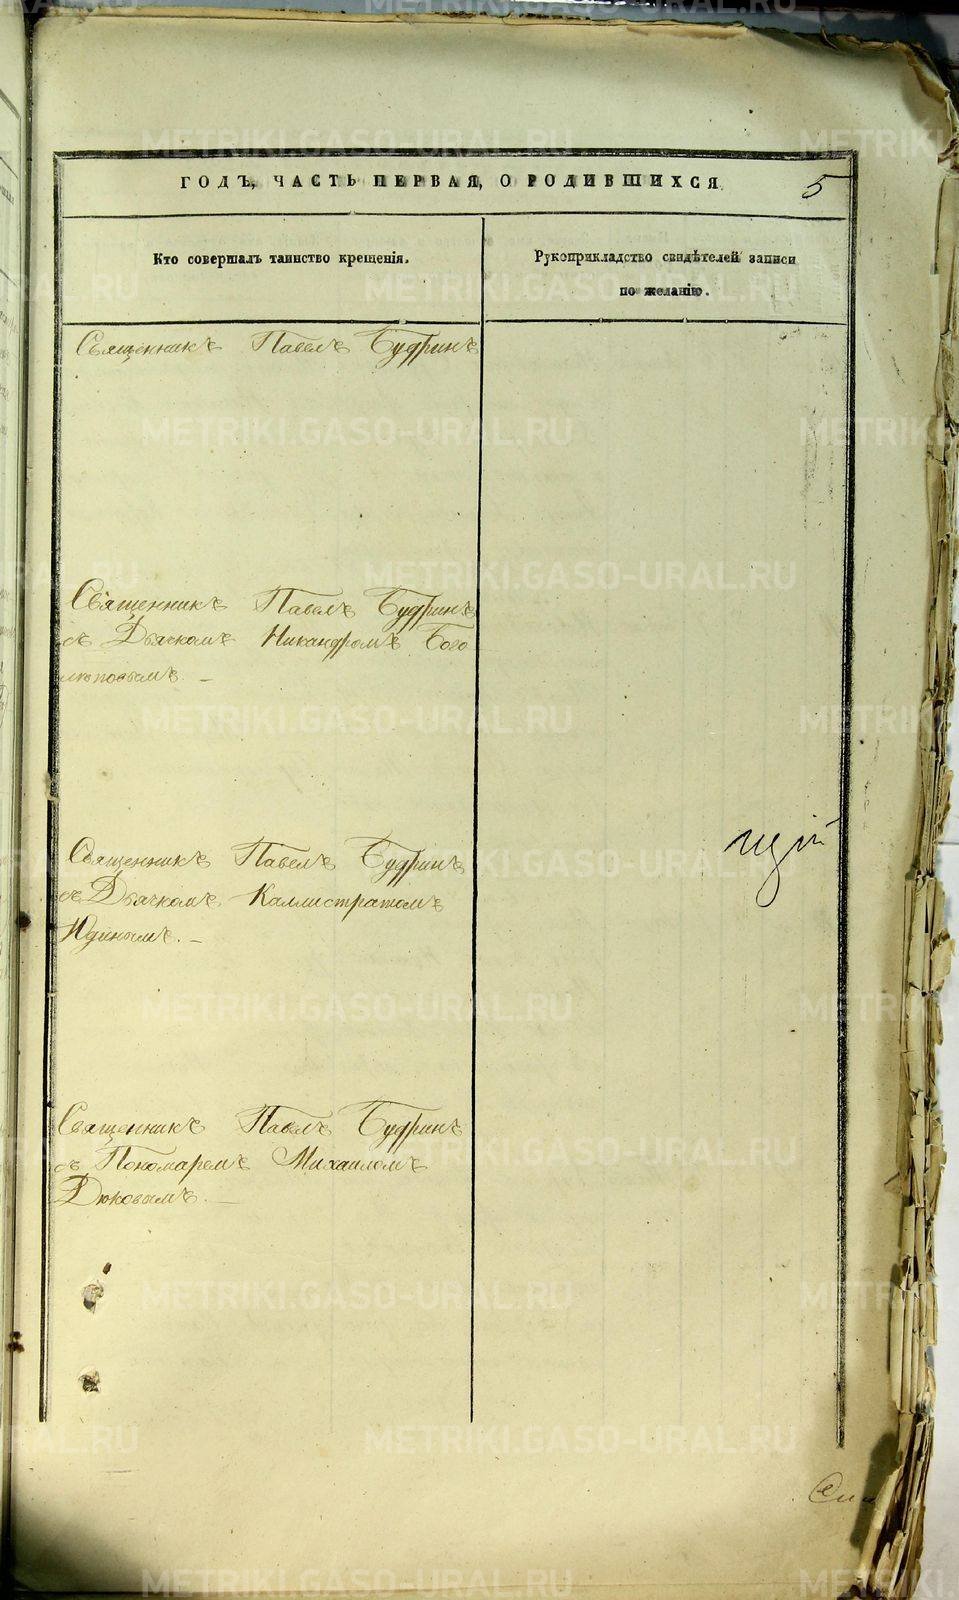 ГОДЪ, ЧАСТЬ ПЕРВАЯ, О РОДИВШИХСЯ
5
Кто совершалъ таинство крещенія.
Рукоприкладство свидѣтелей записи
по желанію.
Священникъ Павелъ Будринъ
Священникъ Павелъ Будринъ
съ Дьячкомъ Никандромъ Бого
люповымъ. –
Священникъ Павелъ Будринъ
съ Дьячкомъ Каллистратомъ
Юдинымъ. –
Священникъ Павелъ Будринъ
съ Пономаремъ Михаиломъ
Дюковымъ. –
METRIKI.GASO-URAL.RU